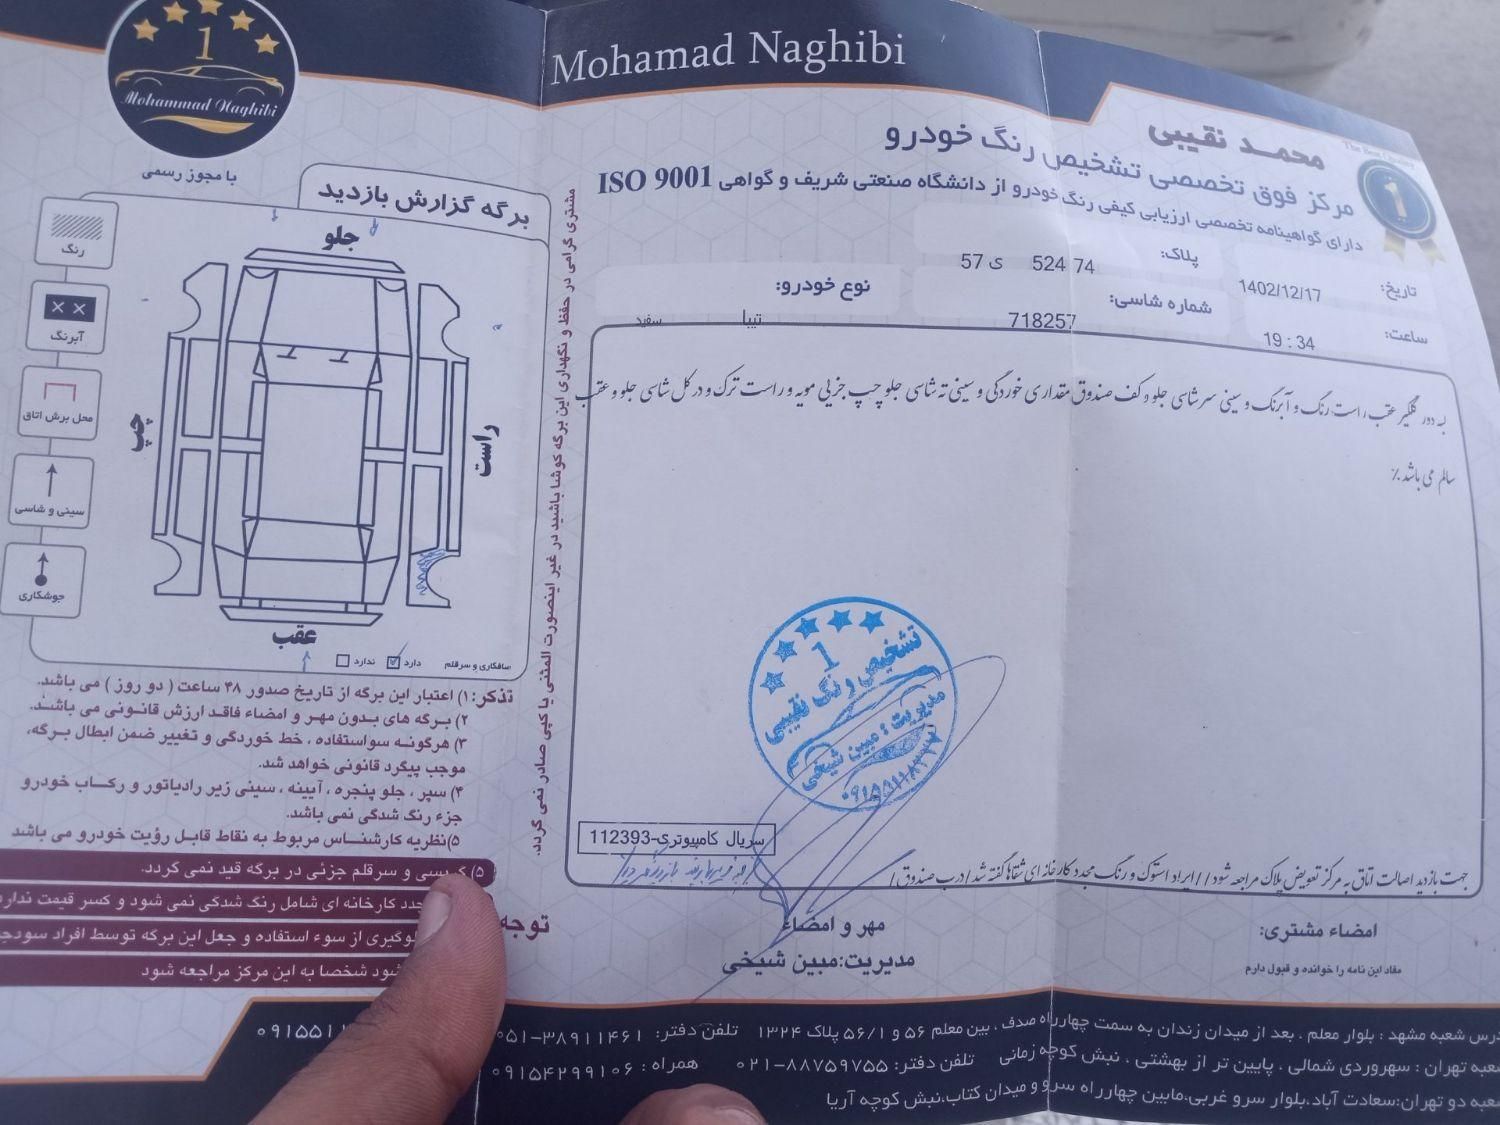 1
Mohammad Naghibi
با مجوز رسمی
Mohamad Naghibi
The Best Quality
1
محمـد نقیبی
مرکز فوق تخصصی تشخیص رنگ خودرو
دارای گواهینامه تخصصی ارزیابی کیفی رنگ خودرو از دانشگاه صنعتی شریف و گواهی ISO 9001
تاریخ: 1402/12/17
پلاک: 74 524 ی 57
ساعت: 19 : 34
شماره شاسی: 718257
نوع خودرو: تیبا سفید
لبه دور گلگیر عقب راست رنگ و آبرنگ و سینی سرشاسی جلو و کف صندوق مقداری خوردگی و سینی ته شاسی جلو چپ جزیی مویه و راست ترک و در کل شاسی جلو و عقب
سالم می باشد./
تشخیص رنگ نقیبی
1
مدیریت: مبین شیخی
سریال کامپیوتری-112393
جهت بازدید اصالت اتاق به مرکز تعویض پلاک مراجعه شود//ایراد استوک و رنگ مجدد کارخانه ای شفاها گفته شد/درب صندوق/
امضاء مشتری:
مفاد این نامه را خوانده و قبول دارم
مهر و امضاء
مدیریت:مبین شیخی
مشتری گرامی در حفظ و نگهداری این برگه کوشا باشید در غیر اینصورت المثنی یا کپی صادر نمی گردد.
برگه گزارش بازدید
جلو
راست
چپ
عقب
رنگ
آبرنگ
محل برش اتاق
سینی و شاسی
جوشکاری
صافکاری و سرقلم دارد ندارد
تذکر: ۱) اعتبار این برگه از تاریخ صدور ۴۸ ساعت ( دو روز ) می باشد.
۲) برگه های بدون مهر و امضاء فاقد ارزش قانونی می باشد.
۳) هرگونه سواستفاده ، خط خوردگی و تغییر ضمن ابطال برگه،
موجب پیگرد قانونی خواهد شد.
۴) سپر ، جلو پنجره ، آیینه ، سینی زیر رادیاتور و رکاب خودرو
جزء رنگ شدگی نمی باشد.
۵)نظریه کارشناس مربوط به نقاط قابل رؤیت خودرو می باشد
۵) و سرقلم جزئی در برگه قید نمی گردد.
کارخانه ای شامل رنگ شدگی نمی شود و کسر قیمت ندارد
توجه
از سوء استفاده و جعل این برگه توسط افراد سودجو
شخصا به این مرکز مراجعه شود
شعبه مشهد : بلوار معلم . بعد از میدان زندان به سمت چهارراه صدف . بین معلم ۵۶ و ۵۶/۱ پلاک ۱۳۲۴ تلفن دفتر: ۰۵۱-۳۸۹۱۱۴۶۱
شعبه تهران : سهروردی شمالی . پایین تر از بهشتی . نبش کوچه زمانی تلفن دفتر: ۰۲۱-۸۸۷۵۹۷۵۵ همراه : ۰۹۱۵۴۲۹۹۱۰۶
شعبه دو تهران:سعادت آباد،بلوار سرو غربی،مابین چهارراه سرو و میدان کتاب،نبش کوچه آریا